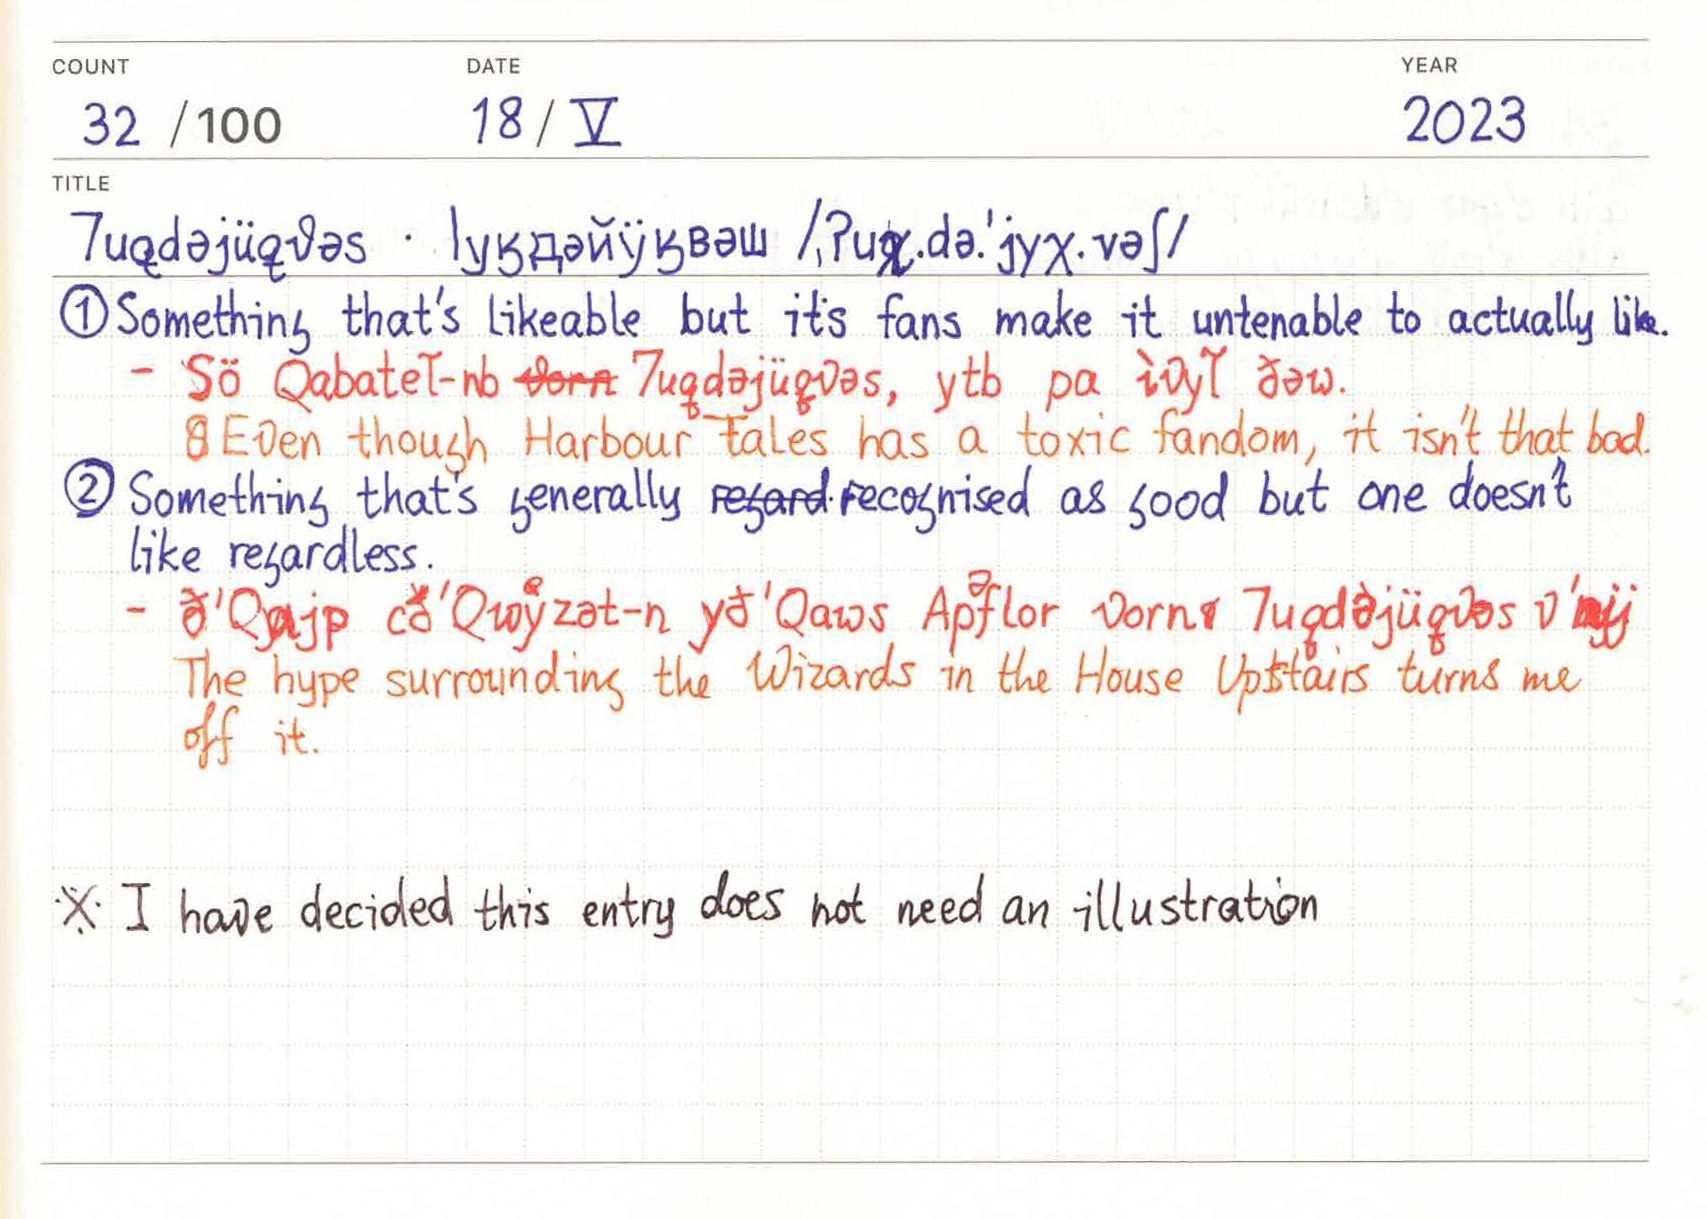 COUNT DATE YEAR
32 /100 18/V 2023
TITLE
7uqdəjüqvəs · Ӏуӄдәйӱӄвәш /ˌʔuχ.də.ˈjyχ.vəʃ/
① Something that's likeable but it's fans make it untenable to actually like.
- Sö Qabatel̃-nb vorn 7uqdəjüqvəs, ytb pa ìvyl̃ ðəw.
Even though Harbour Tales has a toxic fandom, it isn't that bad.
② Something that's generally regard recognised as good but one doesn't
like regardless.
- ð'Qajp cð'Qwẙzət-n yð'Qaws Apflor vorn 7uqdəjüqvəs v'
The hype surrounding the Wizards in the House Upstairs turns me
off it.
※ I have decided this entry does not need an illustration